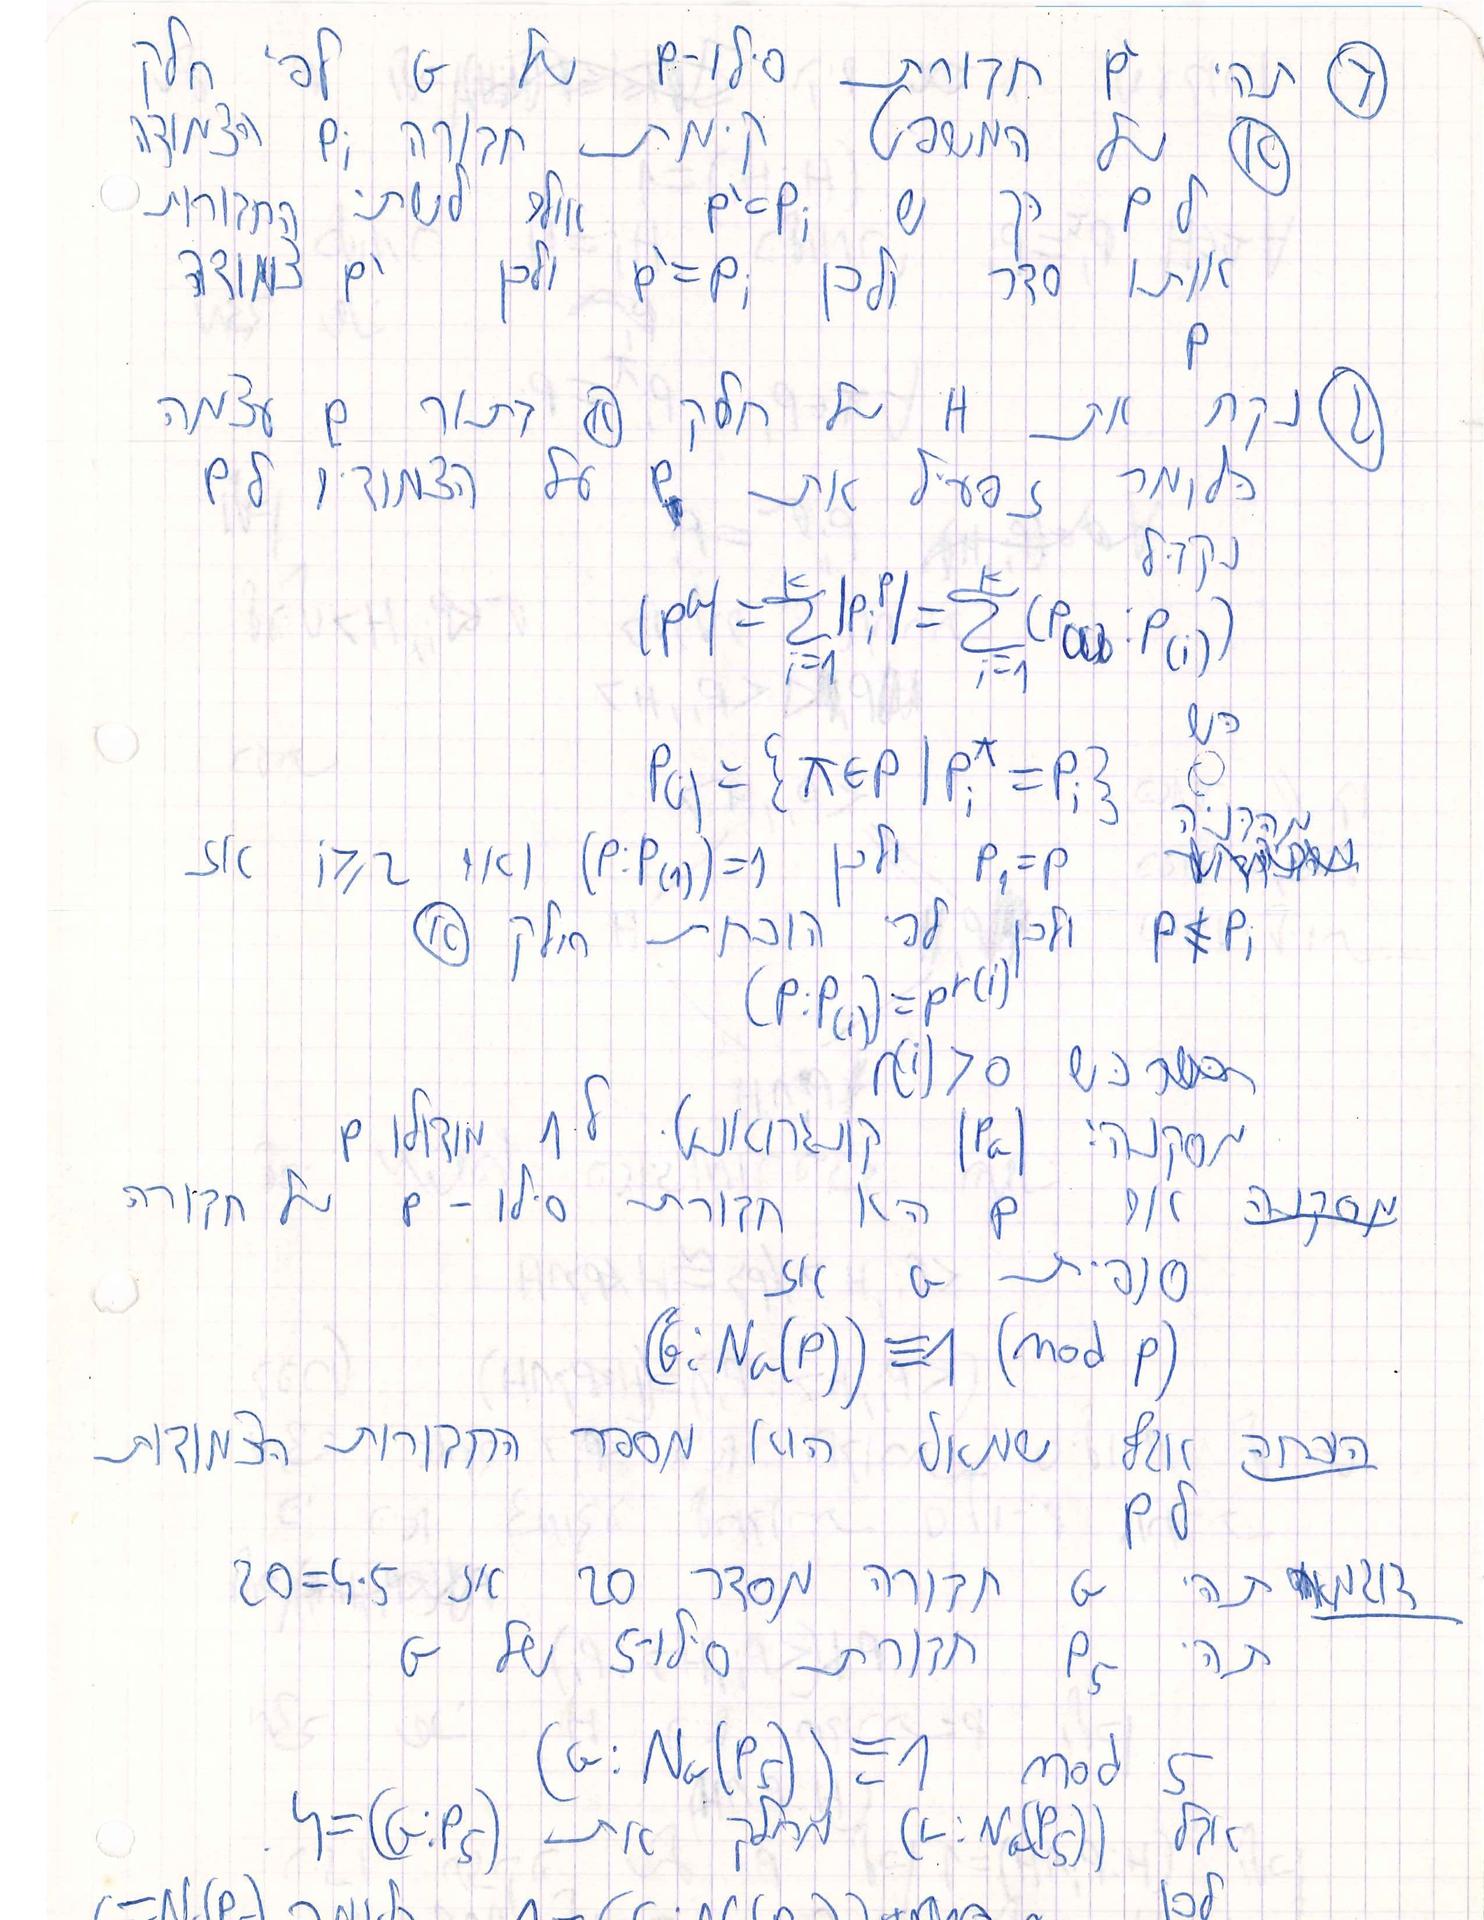 ב תהי P' חבורת סילו-p של G לפי חלק
א של המשפט קימת חבורה Pᵢ הצמודה
ל P כך ש P'<Pᵢ אולם לשתי החבורות
אותו סדר ולכן P'=Pᵢ ולכן P' צמודה
P
ג נקח את H של חלק א בתור P עצמה
כלומר נפעיל את P על הצמודים ל P
נקבל
|P^G| = Σ_{i=1}^{k} |Pᵢ^P| = Σ_{i=1}^{k} (P : P_(i))
כש
P_(i) = {π∈P | Pᵢ^π = Pᵢ}
מהבניה
P₁=P ולכן (P:P_(1))=1 ואם i≥2 אז
P≠Pᵢ ולכן לפי הוכחת חלק א
(P:P_(i))=p^{r(i)}
כש r(i)>0
מסקנה: |P^G| קונגרואנטי ל 1 מודולו p
מסקנה אם P היא חבורת סילו-p של חבורה
סופית G אז
(G:N_G(P)) ≡ 1 (mod p)
הוכחה אגף שמאל הוא מספר החבורות הצמודות
ל P
דוגמא תהי G חבורה מסדר 20 אז 20=4·5
תהי P₅ חבורת סילו-5 של G
(G:N_G(P₅)) ≡ 1 mod 5
אבל (G:N_G(P₅)) מחלק את (G:P₅)=4.
לכן 1=(G:N_G(P₅)) כלומר G=N_G(P₅)